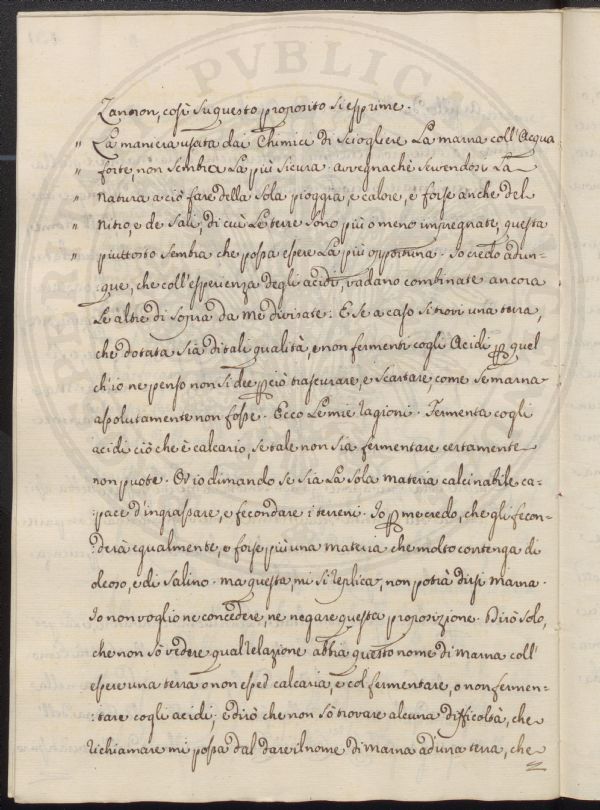 Zannon, così su questo proposito si esprime.
" La maniera usata dai Chimici di Sciogliere La marna coll'Acqua
" forte, non Sembra La più Sicura. avvegnachè Servendosi La
" natura a ciò fare della Sola pioggia, e calore, e forse anche del
" Nitro, e de Sali, di cui Le terre Sono più o meno impregnate, questa
" piuttosto Sembra che possa essere La più opportuna. Io credo adun-
:que, che coll'esperienza degli acidi, vadano combinate ancora
Le altre di Sopra da me divisate: E Se a caso Si trovi una terra,
che dotata Sia di tali qualità, e non fermenti cogli Acidi, per quel
ch'io ne penso non Si dee perciò trascurare, e Scartare, come Se marna
assolutamente non fosse. Ecco Le mie ragioni. Fermenta cogli
acidi ciò che è calcario, Se tale non Sia fermentare certamente
non puote. Or io dimando Se Sia La Sola materia calcinabile ca-
:pace d'ingrassare, e fecondare i terreni. Io per me credo, che gli fecon-
:derà egualmente, e forse più una materia che molto contenga di
oleoso, e di Salino. ma questa, mi Si replica, non potrà dirsi marna.
Io non voglio ne concedere, ne negare questa proposizione. Dirò Solo,
che non Sò vedere qual relazione abbia questo nome di marna coll'
essere una terra o non esser calcaria, e col fermentare, o non fermen-
:tare cogli acidi; e dirò che non Sò trovare alcuna difficoltà, che
richiamare mi possa dal dare il nome di marna ad una terra, che